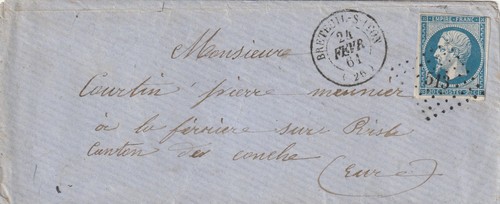 BRETEUIL-S-ITON
24
FEVR
61
(26)
EMPIRE FRANC
515
Monsieur
Courtin pierre meunier
à la ferriere sur Risle
Canton de conche
(Eure)